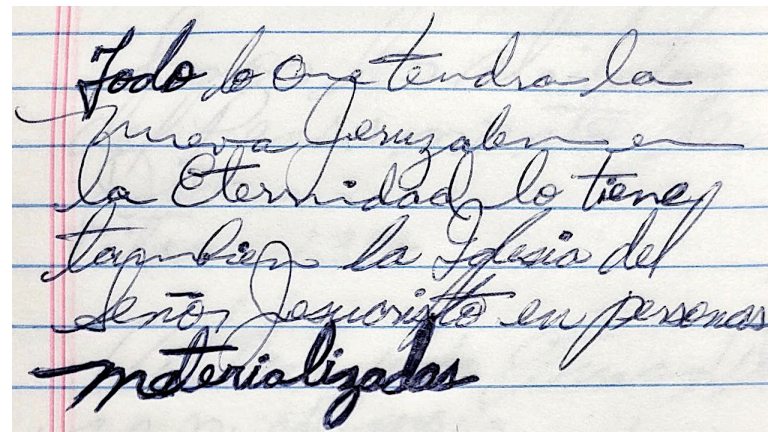 Todo lo que tendra la
nueva Jeruzalem en
la Eternidad, lo tiene
tambien la Iglesia del
Señor Jesucristo en personas
materializadas